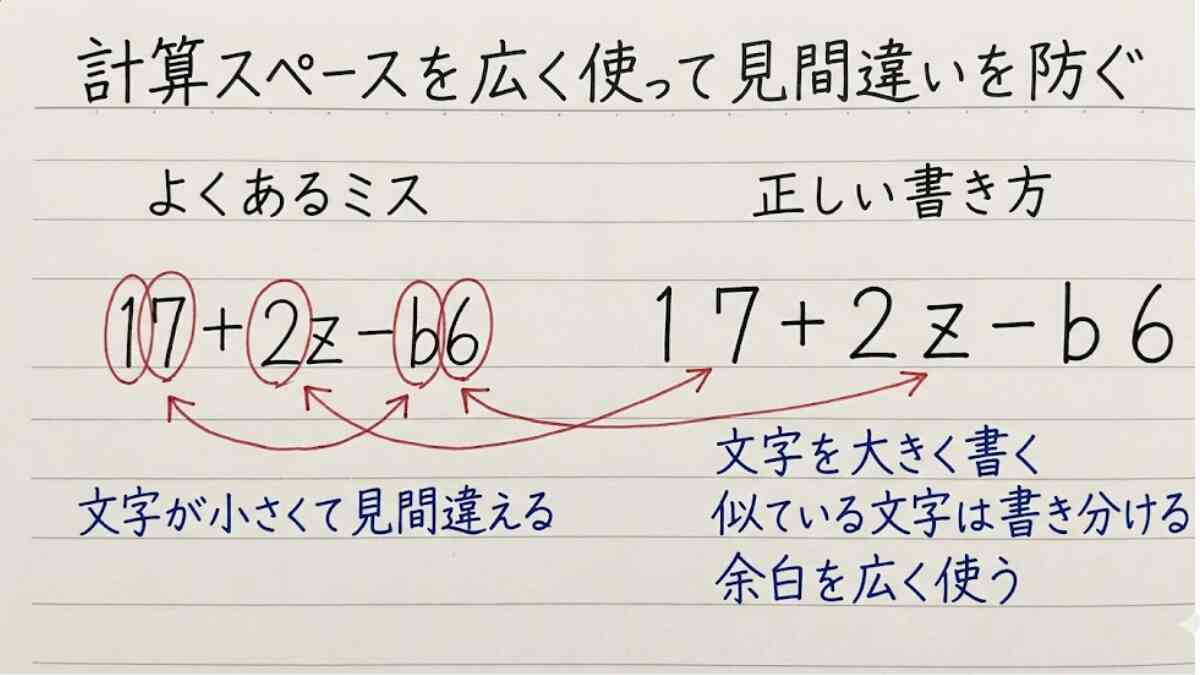 計算スペースを広く使って見間違いを防ぐ
よくあるミス
17+2z−b6
文字が小さくて見間違える
正しい書き方
17+2z−b6
文字を大きく書く
似ている文字は書き分ける
余白を広く使う